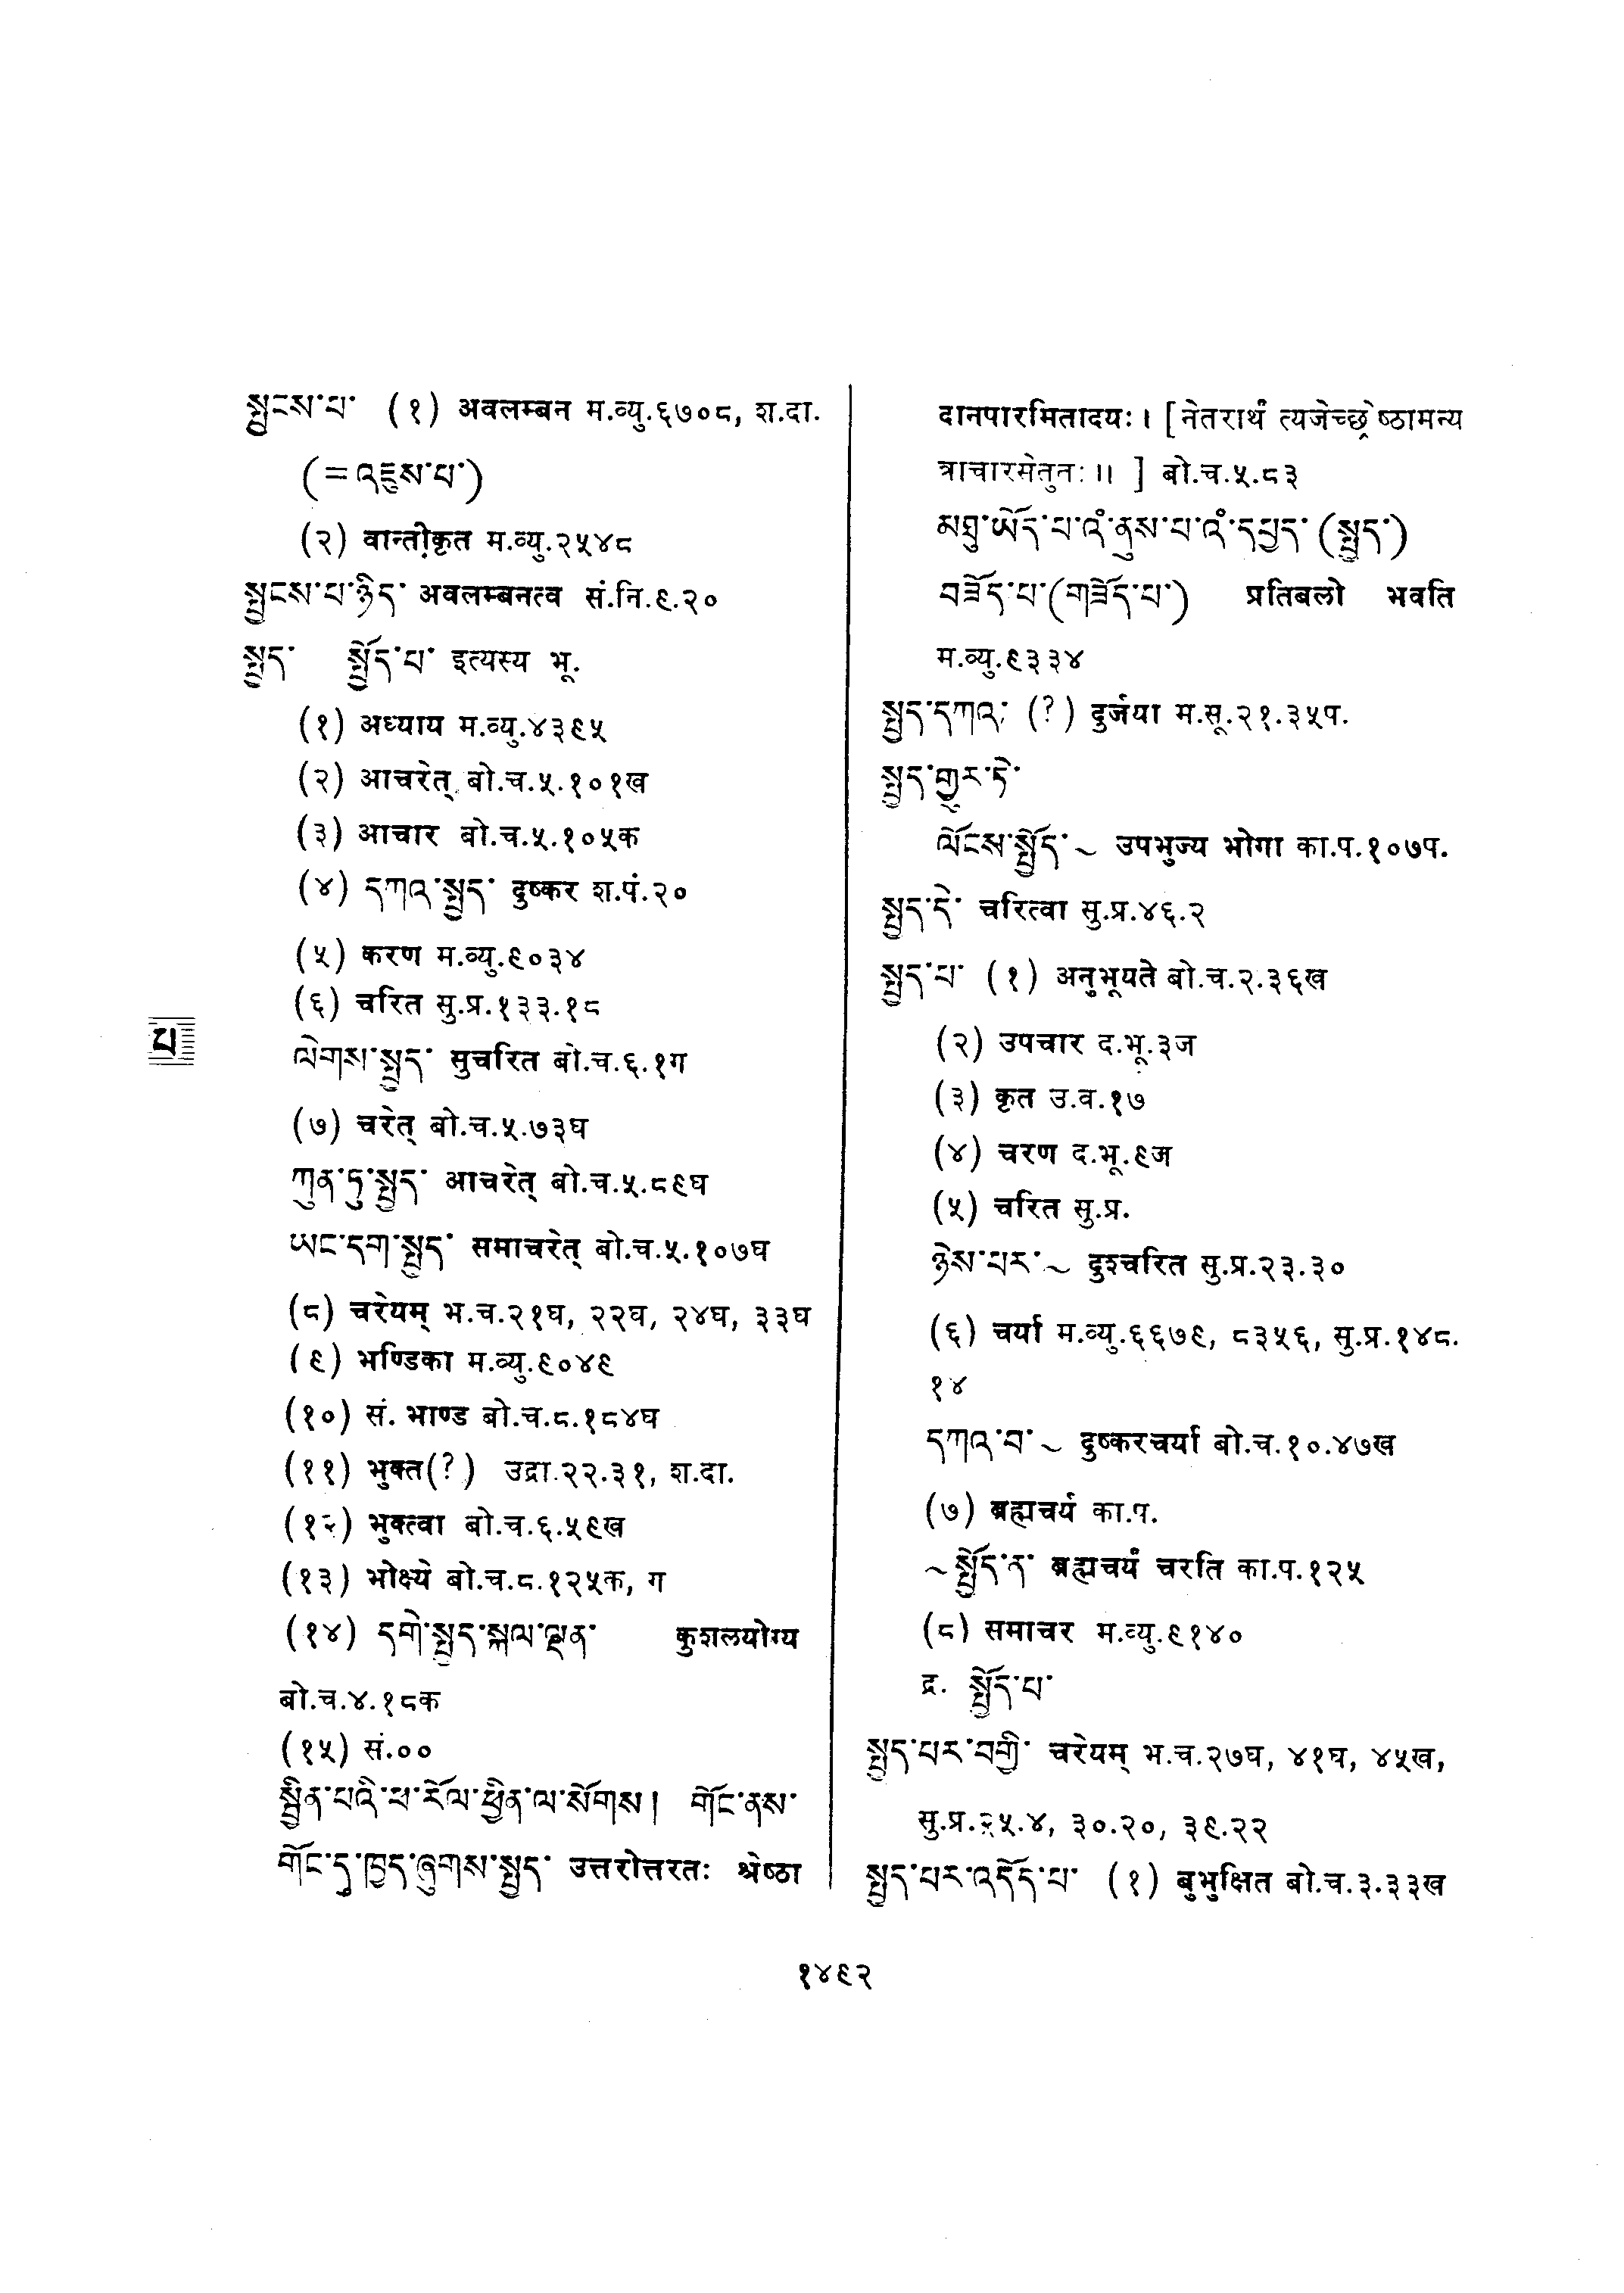 སྤྱངས་པ་ (१) अवलम्बन म.व्यु.६७०८, श.दा.
(=འཇུས་པ་)
(२) वान्तीकृत म.व्यु.२५४८
སྤྱངས་པ་ཉིད་ अवलम्बनत्व सं.नि.९.२०
སྤྱད་ སྤྱོད་པ་ इत्यस्य भू.
(१) अध्याय म.व्यु.४३९५
(२) आचरेत् बो.च.५.१०१ख
(३) आचार बो.च.५.१०५क
(४) དཀའ་སྤྱད་ दुष्कर श.पं.२०
(५) करण म.व्यु.९०३४
(६) चरित सु.प्र.१३३.१८
ལེགས་སྤྱད་ सुचरित बो.च.६.१ग
(७) चरेत् बो.च.५.७३घ
ཀུན་ཏུ་སྤྱད་ आचरेत् बो.च.५.८९घ
ཡང་དག་སྤྱད་ समाचरेत् बो.च.५.१०७घ
(८) चरेयम् भ.च.२१घ, २२घ, २४घ, ३३घ
(९) भण्डिका म.व्यु.९०४९
(१०) सं. भाण्ड बो.च.८.१८४घ
(११) भुक्त(?) उद्रा.२२.३१, श.दा.
(१२) भुक्त्वा बो.च.६.५९ख
(१३) भोक्ष्ये बो.च.८.१२५क, ग
(१४) དགེ་སྤྱད་སྐལ་ལྡན་ कुशलयोग्य
बो.च.४.१८क
(१५) सं.००
སྦྱིན་པའི་ཕ་རོལ་ཕྱིན་ལ་སོགས། གོང་ནས་
གོང་དུ་ཁྱད་ཞུགས་སྤྱད་ उत्तरोत्तरतः श्रेष्ठा
པ
दानपारमितादयः। [नेतरार्थं त्यजेच्छ्रेष्ठामन्य
त्राचारसेतुतः॥ ] बो.च.५.८३
མཐུ་ཡོད་པ་འཾ་ནུས་པ་འཾ་དཔྱད་(སྤྱད་)
བཟོད་པ་(གཟོད་པ་) प्रतिबलो भवति
म.व्यु.९३३४
སྤྱད་དཀའ་ (?) दुर्जया म.सू.२१.३५प.
སྤྱད་གྱུར་ཏེ་
ལོངས་སྤྱོད་~ उपभुज्य भोगा का.प.१०७प.
སྤྱད་དེ་ चरित्वा सु.प्र.४६.२
སྤྱད་པ་ (१) अनुभूयते बो.च.२.३६ख
(२) उपचार द.भू.३ज
(३) कृत उ.व.१७
(४) चरण द.भू.९ज
(५) चरित सु.प्र.
ཉེས་པར་~ दुश्चरित सु.प्र.२३.३०
(६) चर्या म.व्यु.६६७९, ८३५६, सु.प्र.१४८.
१४
དཀའ་བ་~ दुष्करचर्या बो.च.१०.४७ख
(७) ब्रह्मचर्य का.प.
~སྤྱོད་ན་ ब्रह्मचर्यं चरति का.प.१२५
(८) समाचर म.व्यु.९१४०
द्र. སྤྱོད་པ་
སྤྱད་པར་བགྱི་ चरेयम् भ.च.२७घ, ४१घ, ४५ख,
सु.प्र.२५.४, ३०.२०, ३९.२२
སྤྱད་པར་འདོད་པ་ (१) बुभुक्षित बो.च.३.३३ख
१४९२